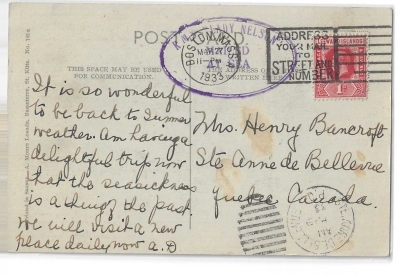 POST
R.M.S. LADY NELSON
MAILED
AT SEA
BOSTON, MASS.
1933
ADDRESS
YOUR MAIL
TO
STREET AND
NUMBER
LEEWARD ISLANDS
1d
THIS SPACE MAY BE USED
FOR COMMUNICATION.
It is so wonderful
to be back to Summer
weather. Am having a
delightful trip now
that the seasickness
is a thing of the past.
We will visit a new
place daily now A.D
Mrs. Henry Bancroft
Ste Anne de Bellevue
Quebec Canada.